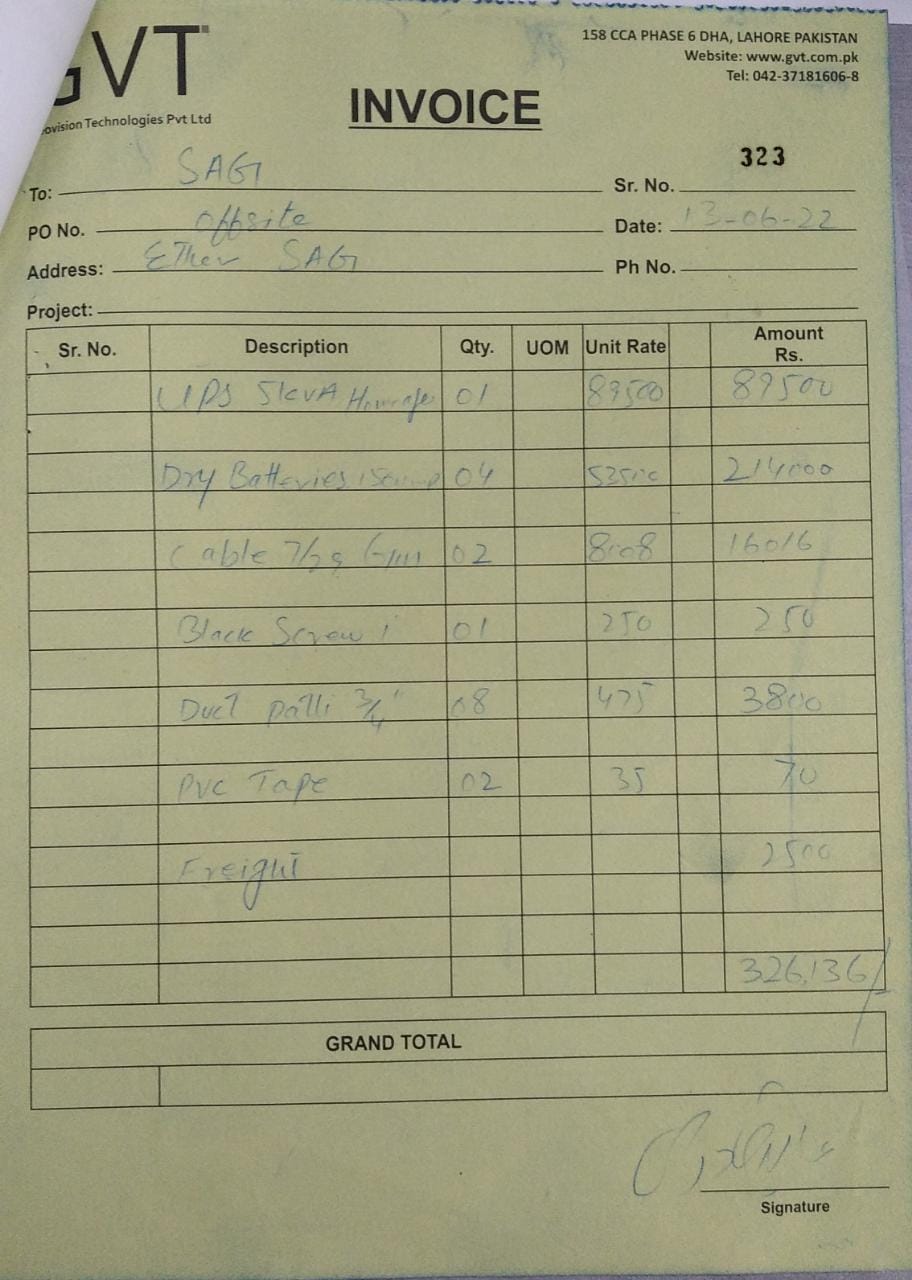 GVT
ovision Technologies Pvt Ltd
158 CCA PHASE 6 DHA, LAHORE PAKISTAN
Website: www.gvt.com.pk
Tel: 042-37181606-8
INVOICE
323
To: SAG Sr. No.
PO No. Offsite Date: 13-06-22
Address: Ether SAG Ph No.
Project:
Sr. No. Description Qty. UOM Unit Rate Amount Rs.
UPS 5kVA Homage 01 89500 89500
Dry Batteries 04 53500 214000
Cable 7/29 02 8008 16016
Black Screw 1 01 250 250
Duct patti 3/4" 08 475 3800
PVC Tape 02 35 70
Freight 2500
326,136/
GRAND TOTAL
Signature